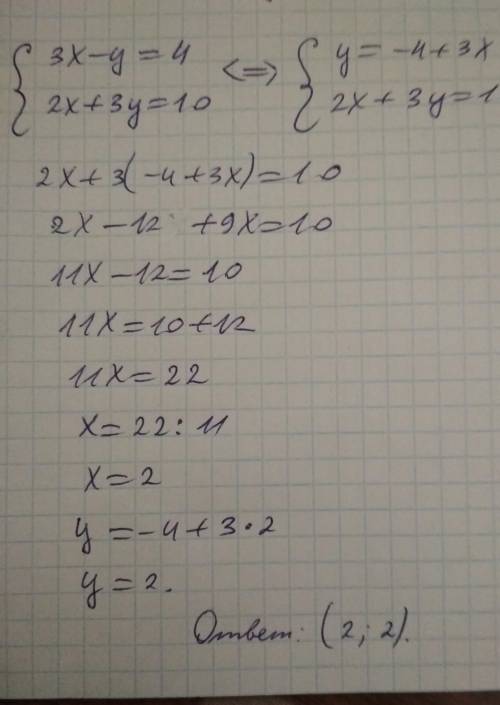 { 3x-y=4 <=> { y=-4+3x
{ 2x+3y=10 { 2x+3y=1
2x+3(-4+3x)=10
2x-12 +9x=10
11x-12=10
11x=10+12
11x=22
x=22:11
x=2
y=-4+3·2
y=2.
Ответ: (2; 2).